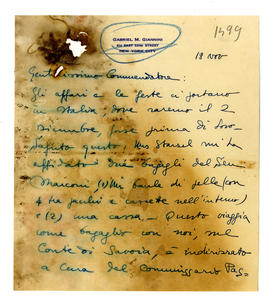 1499
GABRIEL M. GIANNINI
EAST 22ND STREET
NEW YORK CITY
18 Nov
Gentilissimo Commendatore:
Gli affari e le feste ci portano
in Italia, dove saremo il 2
Dicembre, forse prima di
questo, Mrs ha
affidato due bagagli del Sen
Marconi, (1) Un baule di pelle (con
4 tra e cassette nell'interno)
e (2) una cassa. Questo viaggia
come bagaglio con noi, sul
Conte di Savoia, è indirizzato
a Cura del Commissario Pag=